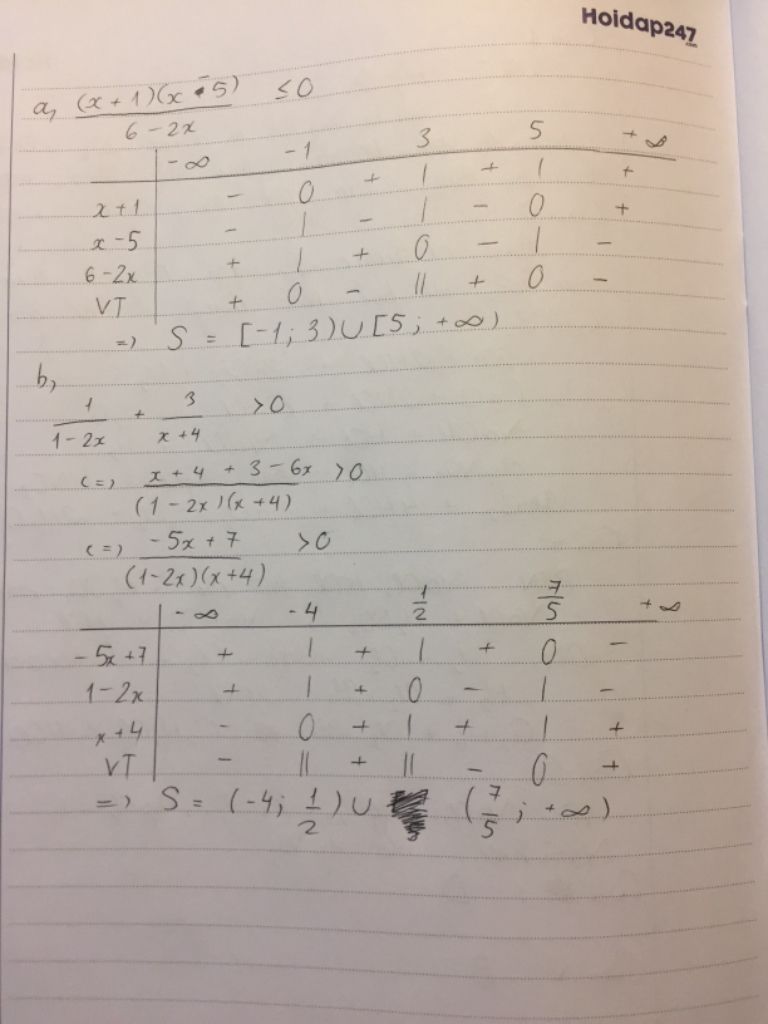 Hoidap247
.com
a, (x + 1)(x - 5) / 6 - 2x ≤ 0
-∞ -1 3 5 +∞
x + 1 - 0 + | + | +
x - 5 - | - | - 0 +
6 - 2x + | + 0 - | -
VT + 0 - || + 0 -
=> S = [-1; 3) ∪ [5; +∞)
b,
1 / 1 - 2x + 3 / x + 4 > 0
(=) x + 4 + 3 - 6x / (1 - 2x)(x + 4) > 0
(=) -5x + 7 / (1 - 2x)(x + 4) > 0
-∞ -4 1/2 7/5 +∞
-5x + 7 + | + | + 0 -
1 - 2x + | + 0 - | -
x + 4 - 0 + | + | +
VT - || + || - 0 +
=> S = (-4; 1/2) ∪ (7/5; +∞)